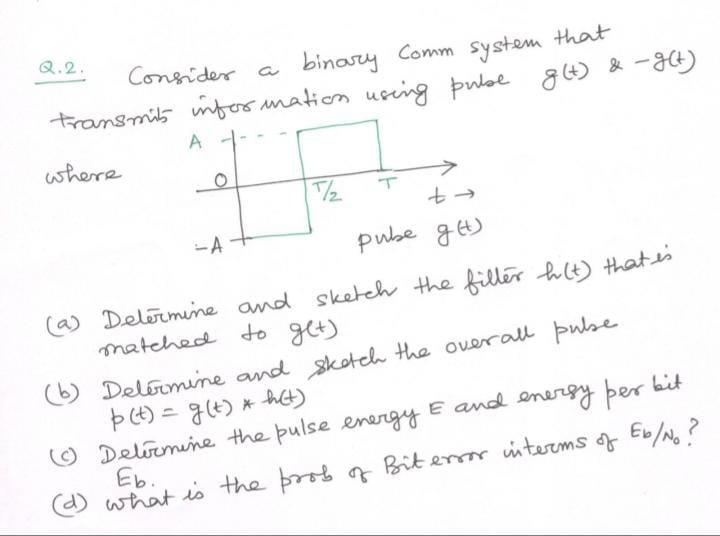 Q.2. Consider a binary Comm system that
transmits information using pulse g(t) & -g(t)
where
A
O
T/2
T
t →
-A
pulse g(t)
(a) Determine and sketch the filter h(t) that is
matched to g(t)
(b) Determine and sketch the overall pulse
p(t) = g(t) * h(t)
(c) Determine the pulse energy E and energy per bit
Eb.
(d) what is the prob of Bit error interms of Eb/No?